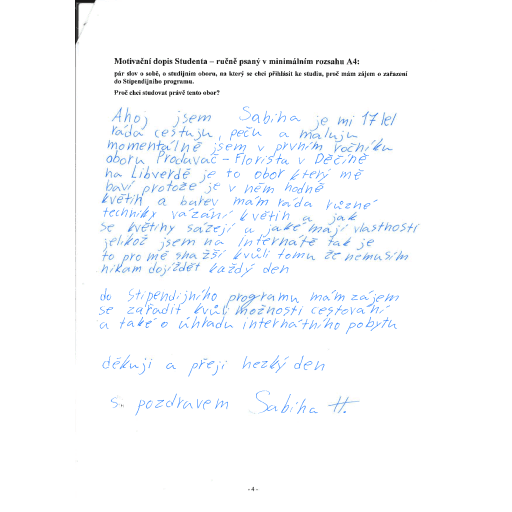 Motivační dopis Studenta – ručně psaný v minimálním rozsahu A4:
pár slov o sobě, o studijním oboru, na který se chci přihlásit ke studiu, proč mám zájem o zařazení
do Stipendijního programu.
Proč chci studovat právě tento obor?
Ahoj jsem Sabina je mi 17 let
ráda cestuju, peču a maluju
momentálně jsem v prvním ročníku
oboru Prodavač - Florista v Děčíně
na Libverdě je to obor který mě
baví protože je v něm hodně
květin a barev mám ráda různé
techniky vázání květin a jak
se květiny sázejí a jaké mají vlastnosti
jelikož jsem na Internátě tak je
to pro mě snažší kvůli tomu že nemusím
nikam dojíždět každý den
do Stipendijního programu mám zájem
se zařadit kvůli možnosti cestování
a také o úhradu internátního pobytu
děkuji a přeji hezký den
s pozdravem Sabina H.
- 4 -